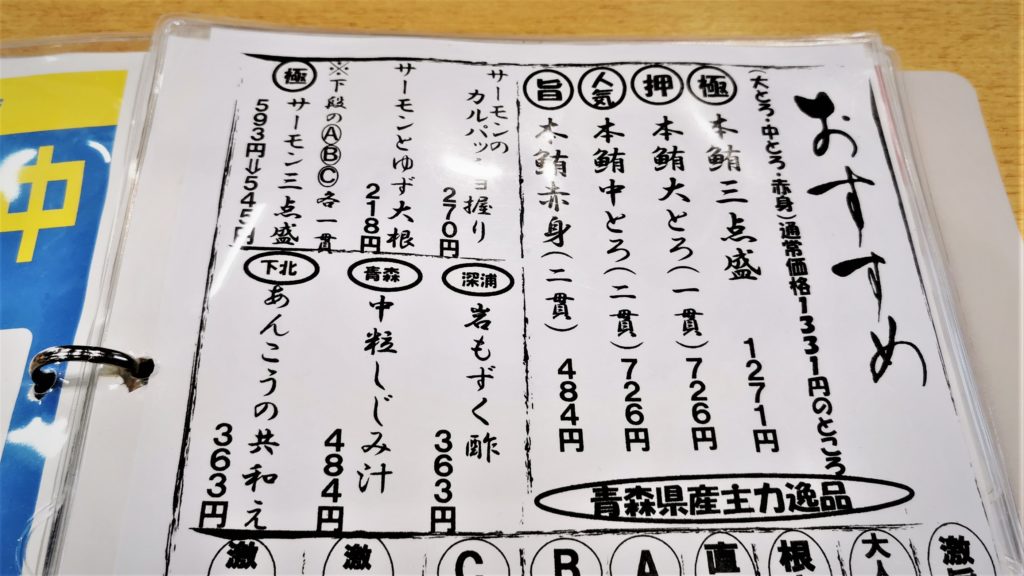 おすすめ
(大とろ・中とろ・赤身)通常価格1331円のところ
極
本鮪三点盛
1271円
押
本鮪大とろ(一貫)
726円
人気
本鮪中とろ(二貫)
726円
旨
本鮪赤身(二貫)
484円
青森県産主力逸品
サーモンの
カルパッチョ握り
270円
サーモンとゆず大根
218円
※下段のⒶⒷⒸ各一貫
極
サーモン三点盛
593円⇒545円
深浦
岩もずく酢
363円
青森
中粒しじみ汁
484円
下北
あんこうの共和え
363円
激
大
根
直
A
B
C
激
激
中